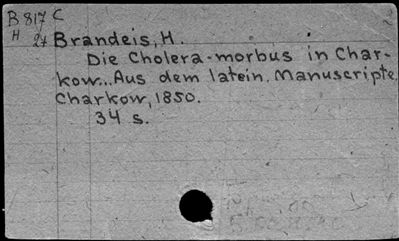 B 817 C
H 27 Brandeis, H.
Die Cholera-morbus in Char-
kow... Aus dem latein. Manuscripte.
Charkow, 1850.
34 s.